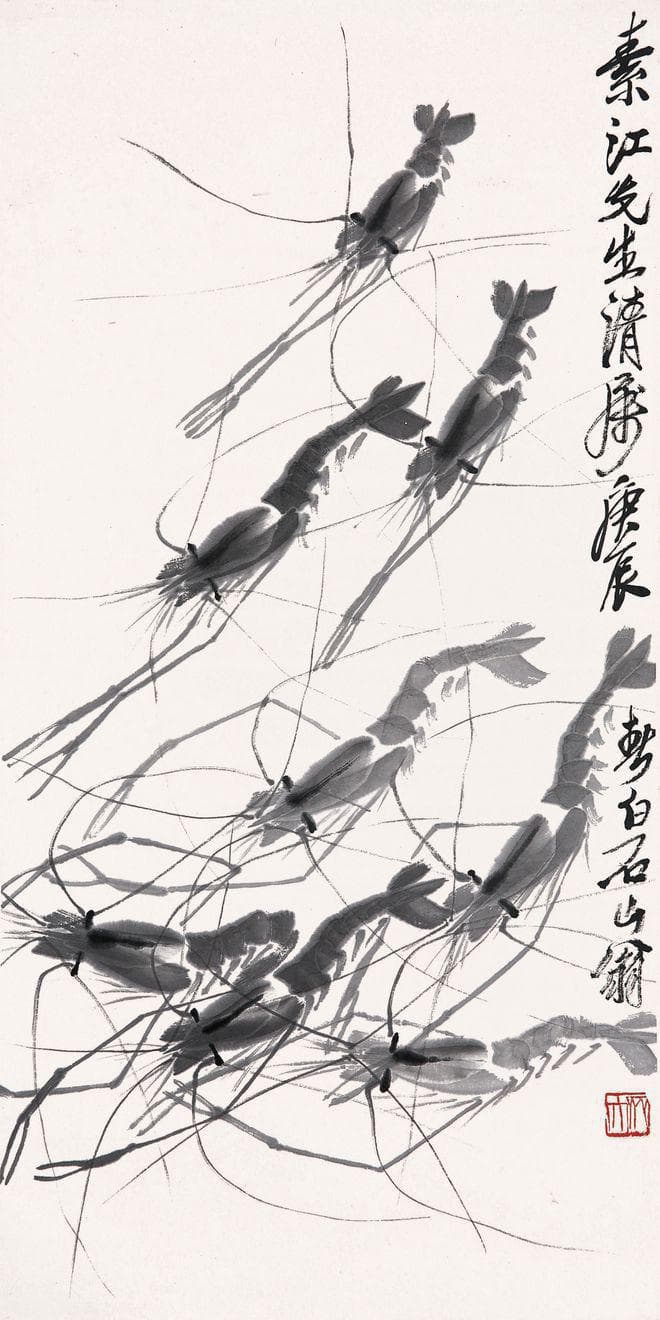 素江先生清屬庚辰齊白石山翁